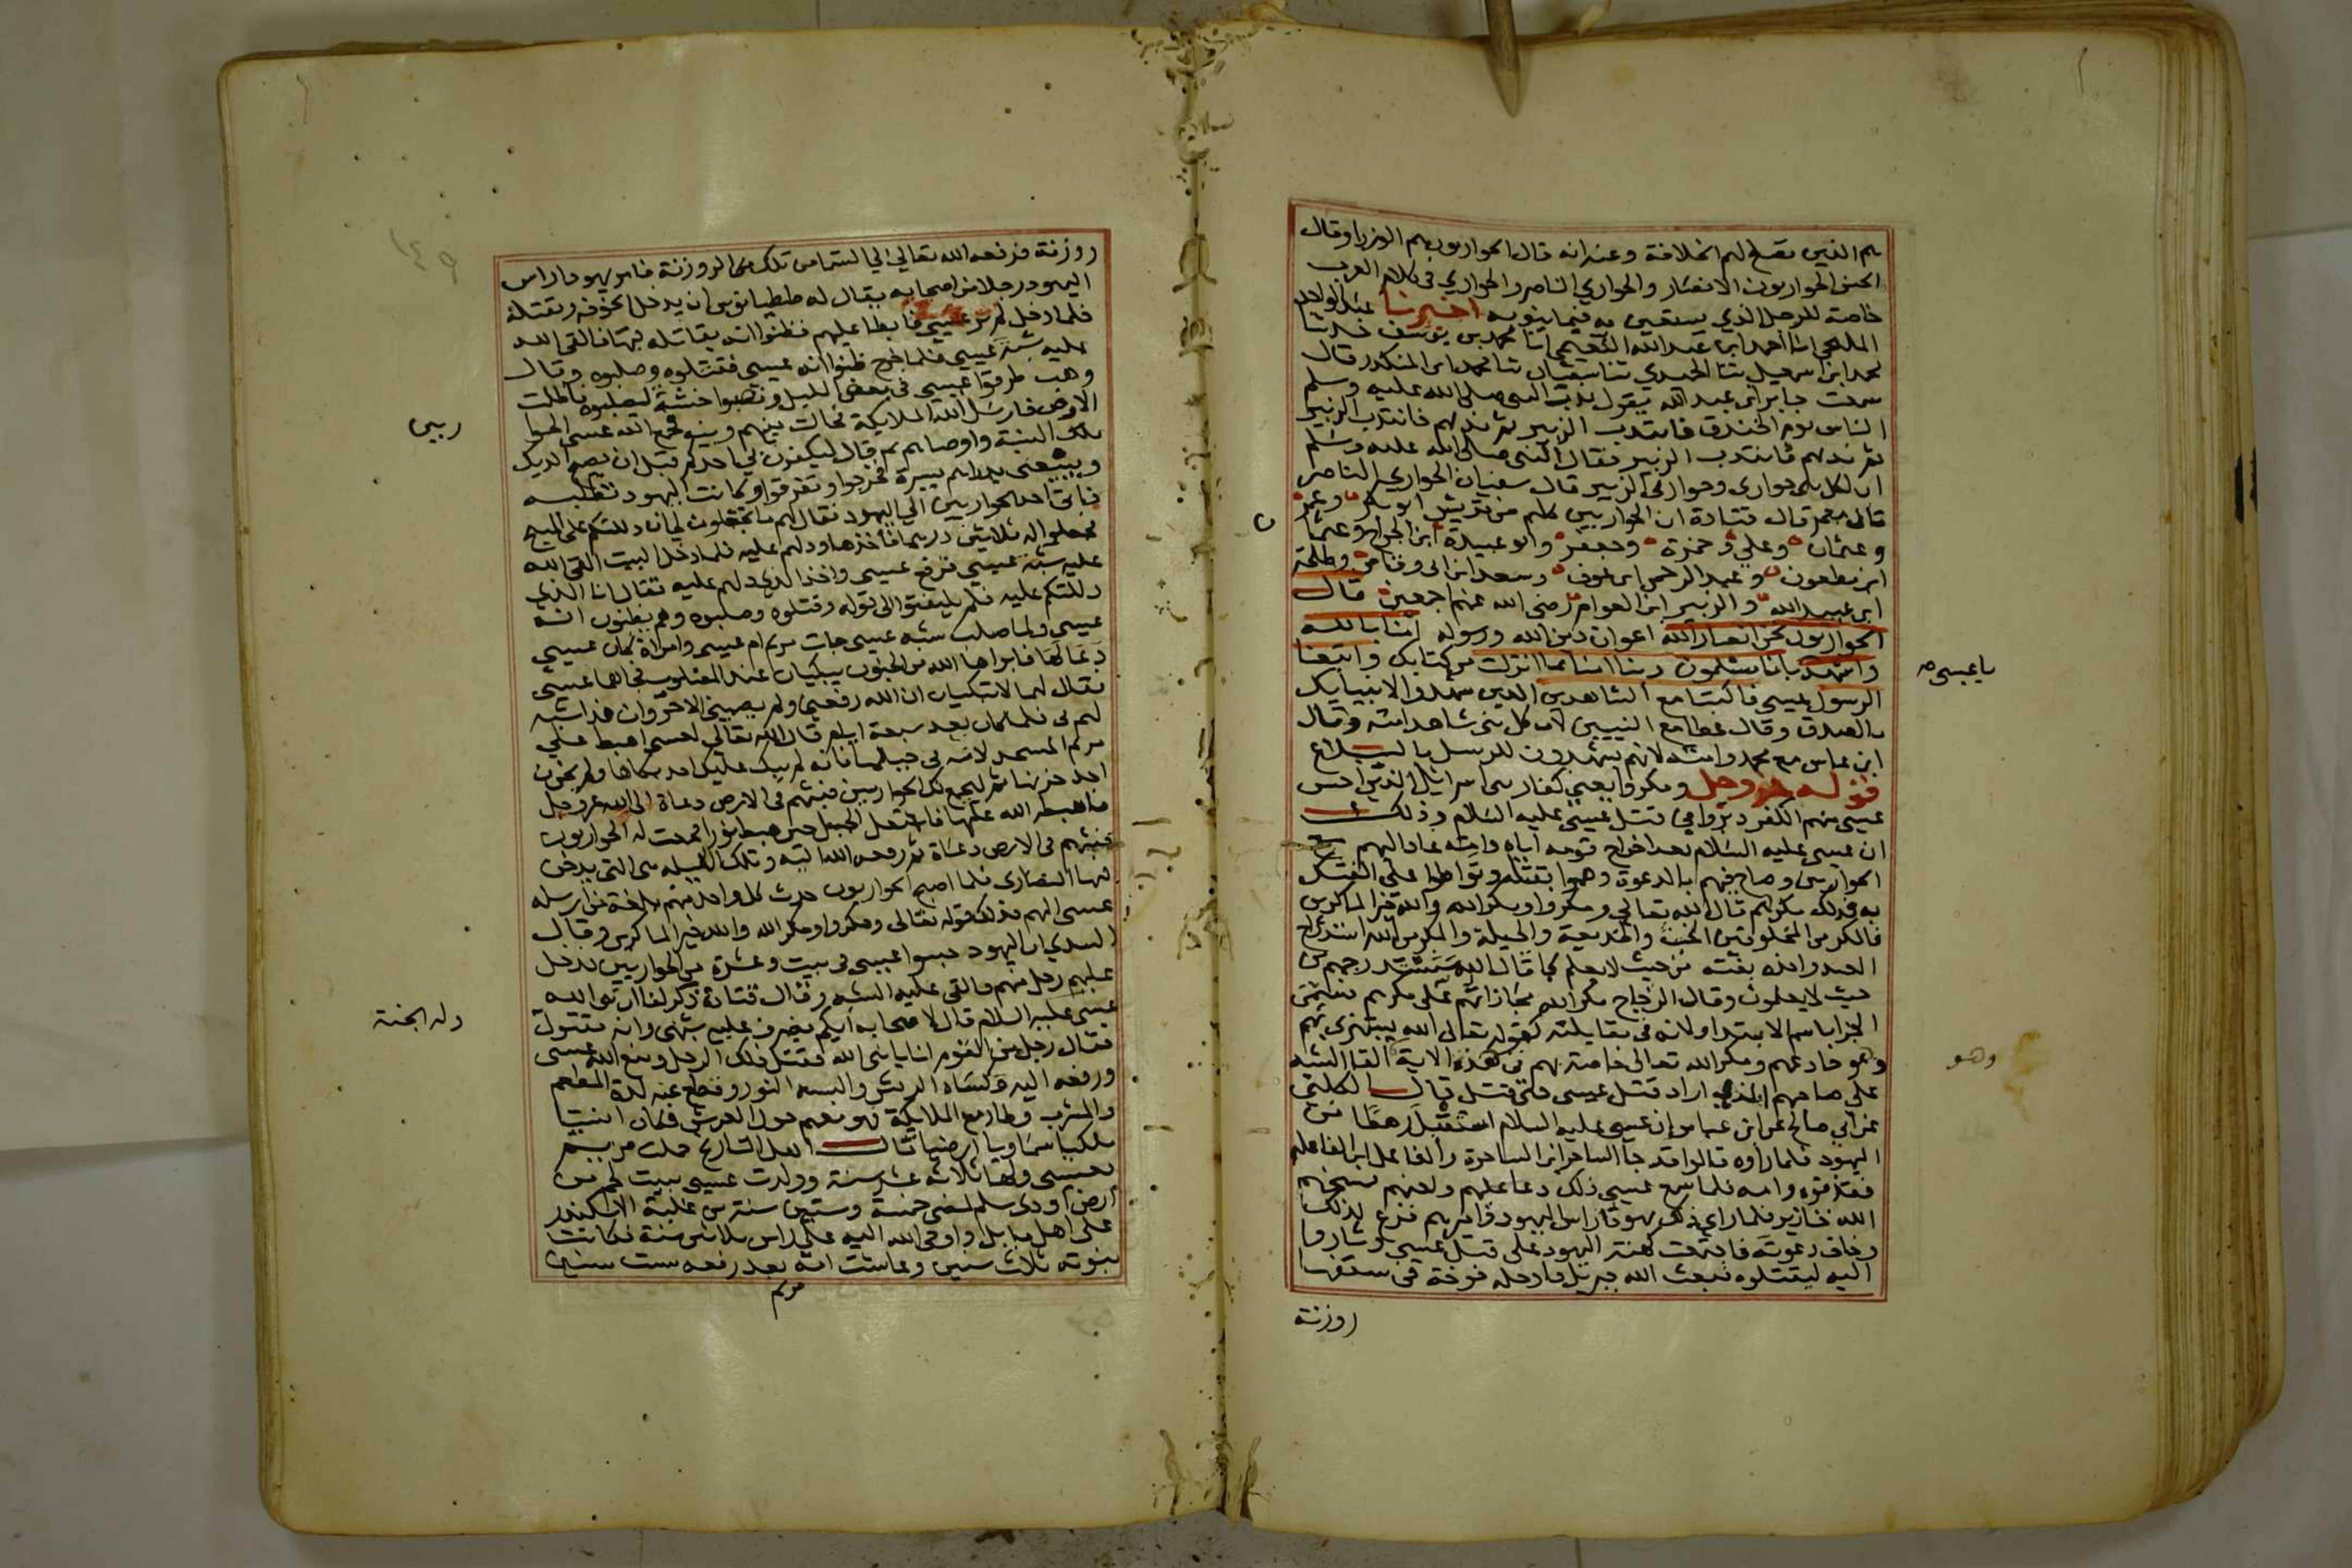 هم الذين تصلح لهم الخلافة وعنه انه قال الحواريون هم الوزرا وقال
الحسن الحواريون الانصار والحواري الناصر والحواري في كلام العرب
خاصة للرجل الذي يستعين به فيما ينوبه اخبرنا عبد الواحد
المليحي انا احمد ابن عبد الله النعيمي انا محمد بن يوسف حدثنا
محمد ابن اسمعيل ثنا الحميدي ثنا سفيان ثنا محمد ابن المنكدر قال
سمعت جابر ابن عبد الله يقول ندب النبي صلى الله عليه وسلم
الناس يوم الخندق فانتدب الزبير ثم ندبهم فانتدب الزبير
ثم ندبهم فانتدب الزبير فقال النبي صلى الله عليه وسلم
ان لكل نبي حواري وحواري الزبير قال سفيان الحواري الناصر
قال معمر قال قتادة ان الحواريين كلهم من قريش ابو بكر وعمر
وعثمان وعلي وحمزة وجعفر وابو عبيدة ابن الجراح وعثما
ن
ابن مظعون وعبد الرحمن ابن عوف وسعد ابن ابي وقاص وطلحة
ابن عبيد الله والزبير ابن العوام رضي الله عنهم اجمعين قال
الحواريون نحن انصار الله اعوان دين الله ورسوله امنا بالله
واشهد بانا مسلمون ربنا امنا بما انزلت من كتابك واتبعنا
يا عيسى صح
الرسول عيسى فاكتبنا مع الشاهدين الذين شهدوا لانبيايك
بالصدق وقال عطا مع النبيين لان كل نبي شاهد امته وقال
ابن عباس مع محمد وامته لانهم يشهدون للرسل بالبلاغ
قوله عز وجل ومكروا يعني كفار بني اسرائيل الذين احس
عيسى منهم الكفر دبروا في قتل عيسى عليه السلام وذلك
ان عيسى عليه السلام بعد اخراج قومه اياه وامه عاد اليهم مع
الحواريين وصاح فيهم بالدعوة وهموا بقتله وتواطوا على الفتك
به فذلك مكرهم قال الله تعالى ومكروا ومكر الله والله خير الماكرين
فالمكر من المخلوقين الخبث والخديعة والحيلة والمكر من الله استدراج
العبد واخذه بغتة من حيث لا يعلم كما قال الله سنستدرجهم من
حيث لا يعلمون وقال الزجاج مكر الله مجازاتهم على مكرهم فسمى
الجزا باسم الابتدا ولانه في مقابلته كقوله تعالى الله يستهزئ بهم
وهو خادعهم ومكر الله تعالى خاصة بهم في هذه الاية القا الشبه
وهو
على صاحبهم الذي اراد قتل عيسى حتى قتل قال الكلبي
عن ابي صالح عن ابن عباس ان عيسى عليه السلام استقبل رهطا من
اليهود فلما راوه قالوا قد جا الساحر ابن الساحرة والفاعل ابن الفاعلة
فقذفوه وامه فلما سمع عيسى ذلك دعا عليهم ولعنهم فمسخهم
الله خنازير فلما راي ذلك يهوذا راس اليهود واميرهم فزع لذلك
وخاف دعوته فاجتمعت كلمة اليهود على قتل عيسى وثاروا
اليه ليقتلوه فبعث الله جبريل فادخله خوخة في سقفها
روزنة
١٤٩
روزنة فرفعه الله تعالى الى السما من تلك الروزنة فامر يهوذا راس
اليهود رجلا من اصحابه يقال له ططيانوس ان يدخل الخوخة ويقتله
فلما دخل لم ير عيسى فابطا عليهم فظنوا انه يقاتله فيها فالقى الله
عليه شبه عيسى فلما خرج ظنوا انه عيسى فقتلوه وصلبوه وقال
وهب طرقوا عيسى في بعض الليل ونصبوا خشبة ليصلبوه فاظلمت
الارض فارسل الله الملايكة فحالت بينهم وبينه فجمع الله عيسى الحوا
ريين
تلك الليلة واوصاهم ثم قال ليكفرن بي احدكم قبل ان يصيح الديك
ويبيعني بدراهم يسيرة فخرجوا وتفرقوا وكانت اليهود تطلبه
فاتى احد الحواريين الى اليهود فقال لهم ما تجعلون لي ان دللتكم على المسيح
فجعلوا له ثلاثين درهما فاخذها ودلهم عليه فلما دخل البيت القى الله
عليه شبه عيسى فرفع عيسى واخذ الذي دلهم عليه فقال انا الذي
دللتكم عليه فلم يلتفتوا الى قوله وقتلوه وصلبوه وهم يظنون انه
عيسى ولما صلب شبه عيسى جات مريم ام عيسى وامراة كان عيسى
دعا لها فابراها الله من الجنون يبكيان عند المصلوب فجاهما عيسى
فقال لهما لا تبكيان ان الله رفعني ولم يصبني الا خير وان هذا شبه
لهم لي فلما كان بعد سبعة ايام قال الله تعالى لعيسى اهبط على
مريم المجدلانية في جبلها فانه لم يبك عليك احد بكاها ولم يحزن
احد حزنها ثم ليجمع لك الحواريين فبثهم في الارض دعاة الى الله عز وجل
فاهبطه الله عليها فاشتعل الجبل حين هبط نورا فجمعت له الحواريون
فبثهم في الارض دعاة ثم رفعه الله اليه وتلك الليلة هي التي يدخن
فيها النصارى فلما اصبح الحواريون حدث كل واحد منهم بلغة من ارسله
عيسى اليهم فذلك قوله تعالى ومكروا ومكر الله والله خير الماكرين وقال
السدي ان اليهود حبسوا عيسى في بيت وعشرة من الحواريين فدخل
عليهم رجل منهم فالقى عليه الشبه وقال قتادة ذكر لنا ان نبي الله
عيسى عليه السلام قال لاصحابه ايكم يقذف عليه شبهي وانه مقتول
وله الجنة
فقال رجل من القوم انا يا نبي الله فقتل ذلك الرجل ومنع الله عيسى
ورفعه اليه وكساه الريش والبسه النور وقطع عنه لذة المطعم
والمشرب وطار مع الملايكة فهو معهم حول العرش فكان انسيا
ملكيا سماويا ارضيا قال اهل التاريخ حملت مريم
بعيسى ولها ثلاث عشر سنة وولدت عيسى ببيت لحم من
ارض اوري سلم لمضي خمسة وستين سنة من غلبة الاسكندر
على اهل بابل واوحى الله اليه على راس ثلاثين سنة فكانت
نبوته ثلاث سنين وعاشت امه بعد رفعه ست سنين
مريم